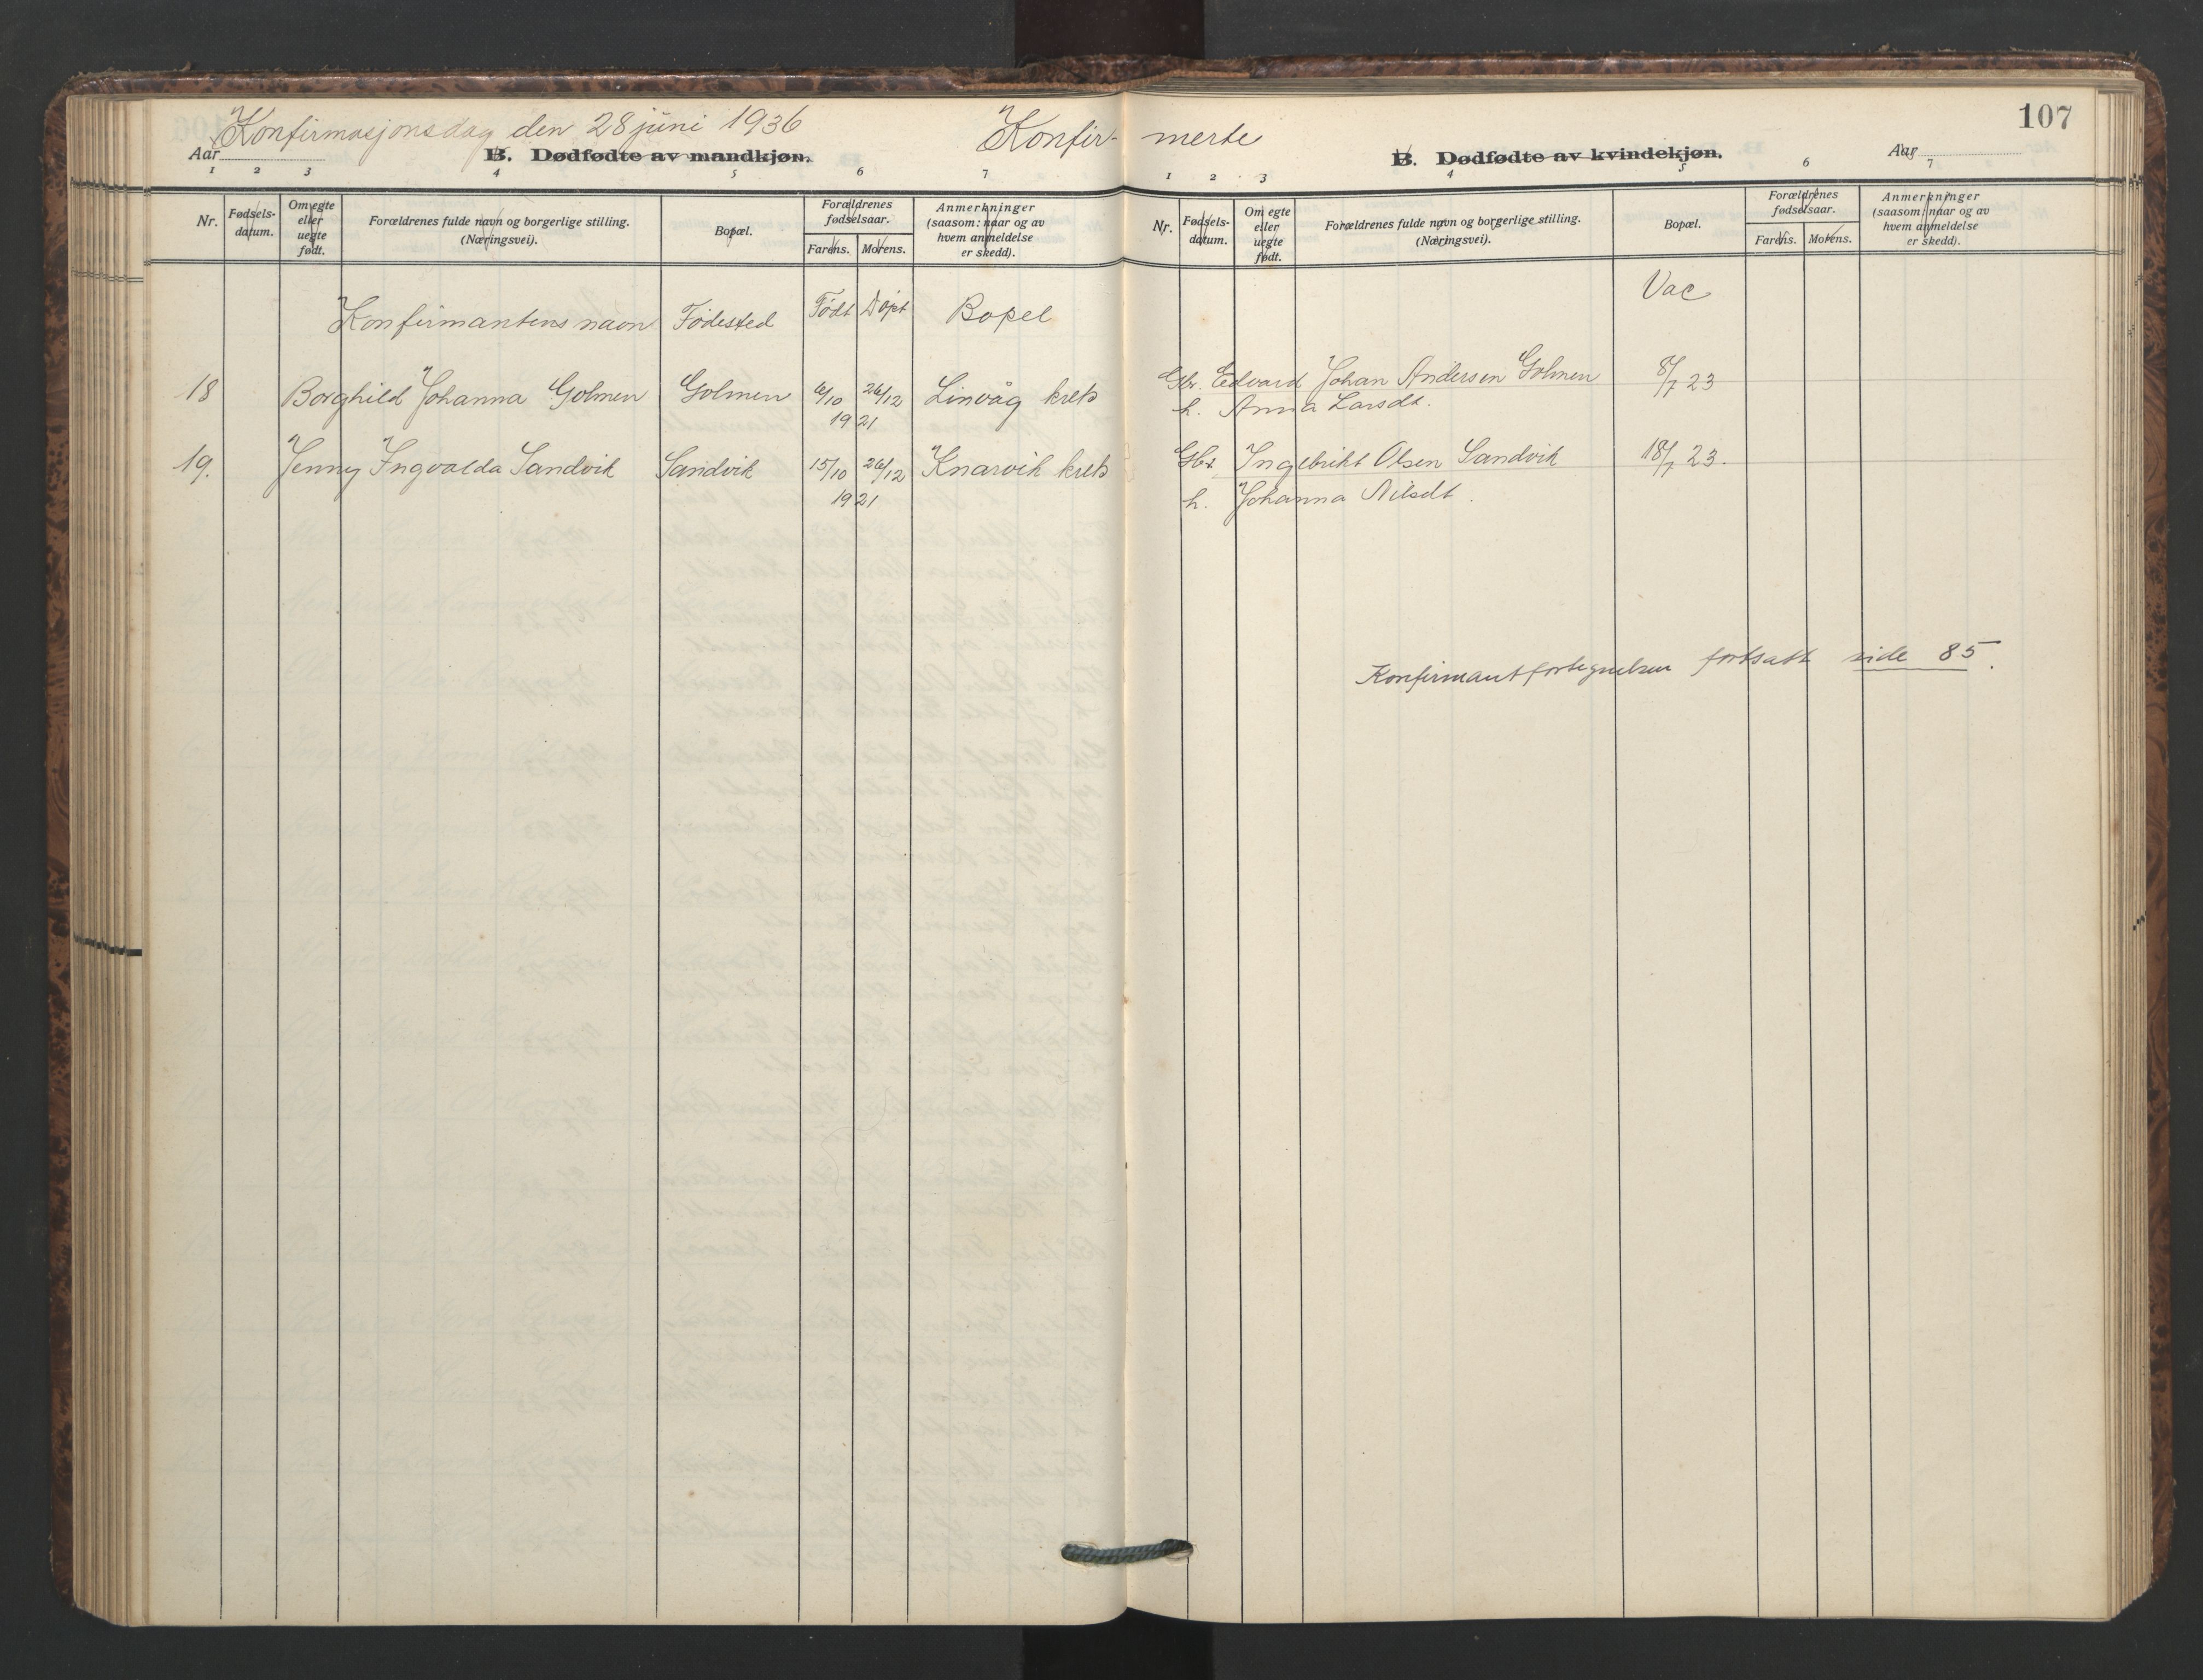 Konfirmasjonsdag den 28 juni 1936
Konfir-
Aar
B. Dødfødte av mandkjøn.
1 2 3 4 5 6 7
Nr.
Fødsels-
datum.
Om egte
eller
uegte
født.
Forældrenes fulde navn og borgerlige stilling.
(Næringsvei).
Bopæl.
Forældrenes
fødselsaar.
Farens. Morens.
Anmerkninger
(saasom: naar og av
hvem anmeldelse
er skedd).
Konfirmantens navn Fødested Født Døpt Bopel
18 Borghild Johanna Golmen Golmen 6/10 26/12 Linvåg krets
1921
19. Jenny Ingvalda Sandvik Sandvik 15/10 26/12 Knarvik krets
1921
107
merte
B. Dødfødte av kvindekjøn.
Aar
1 2 3 4 5 6 7
Nr.
Fødsels-
datum.
Om egte
eller
uegte
født.
Forældrenes fulde navn og borgerlige stilling.
(Næringsvei).
Bopæl.
Forældrenes
fødselsaar.
Farens. Morens.
Anmerkninger
(saasom: naar og av
hvem anmeldelse
er skedd).
Vac
Gbr. Edvard Johan Andersen Golmen 8/7 23
h. Anna Larsdt.
Gbr. Ingebrikt Olsen Sandvik 18/7 23.
h. Johanna Nilsdt.
Konfirmantfortegnelsen fortsatt side 85.